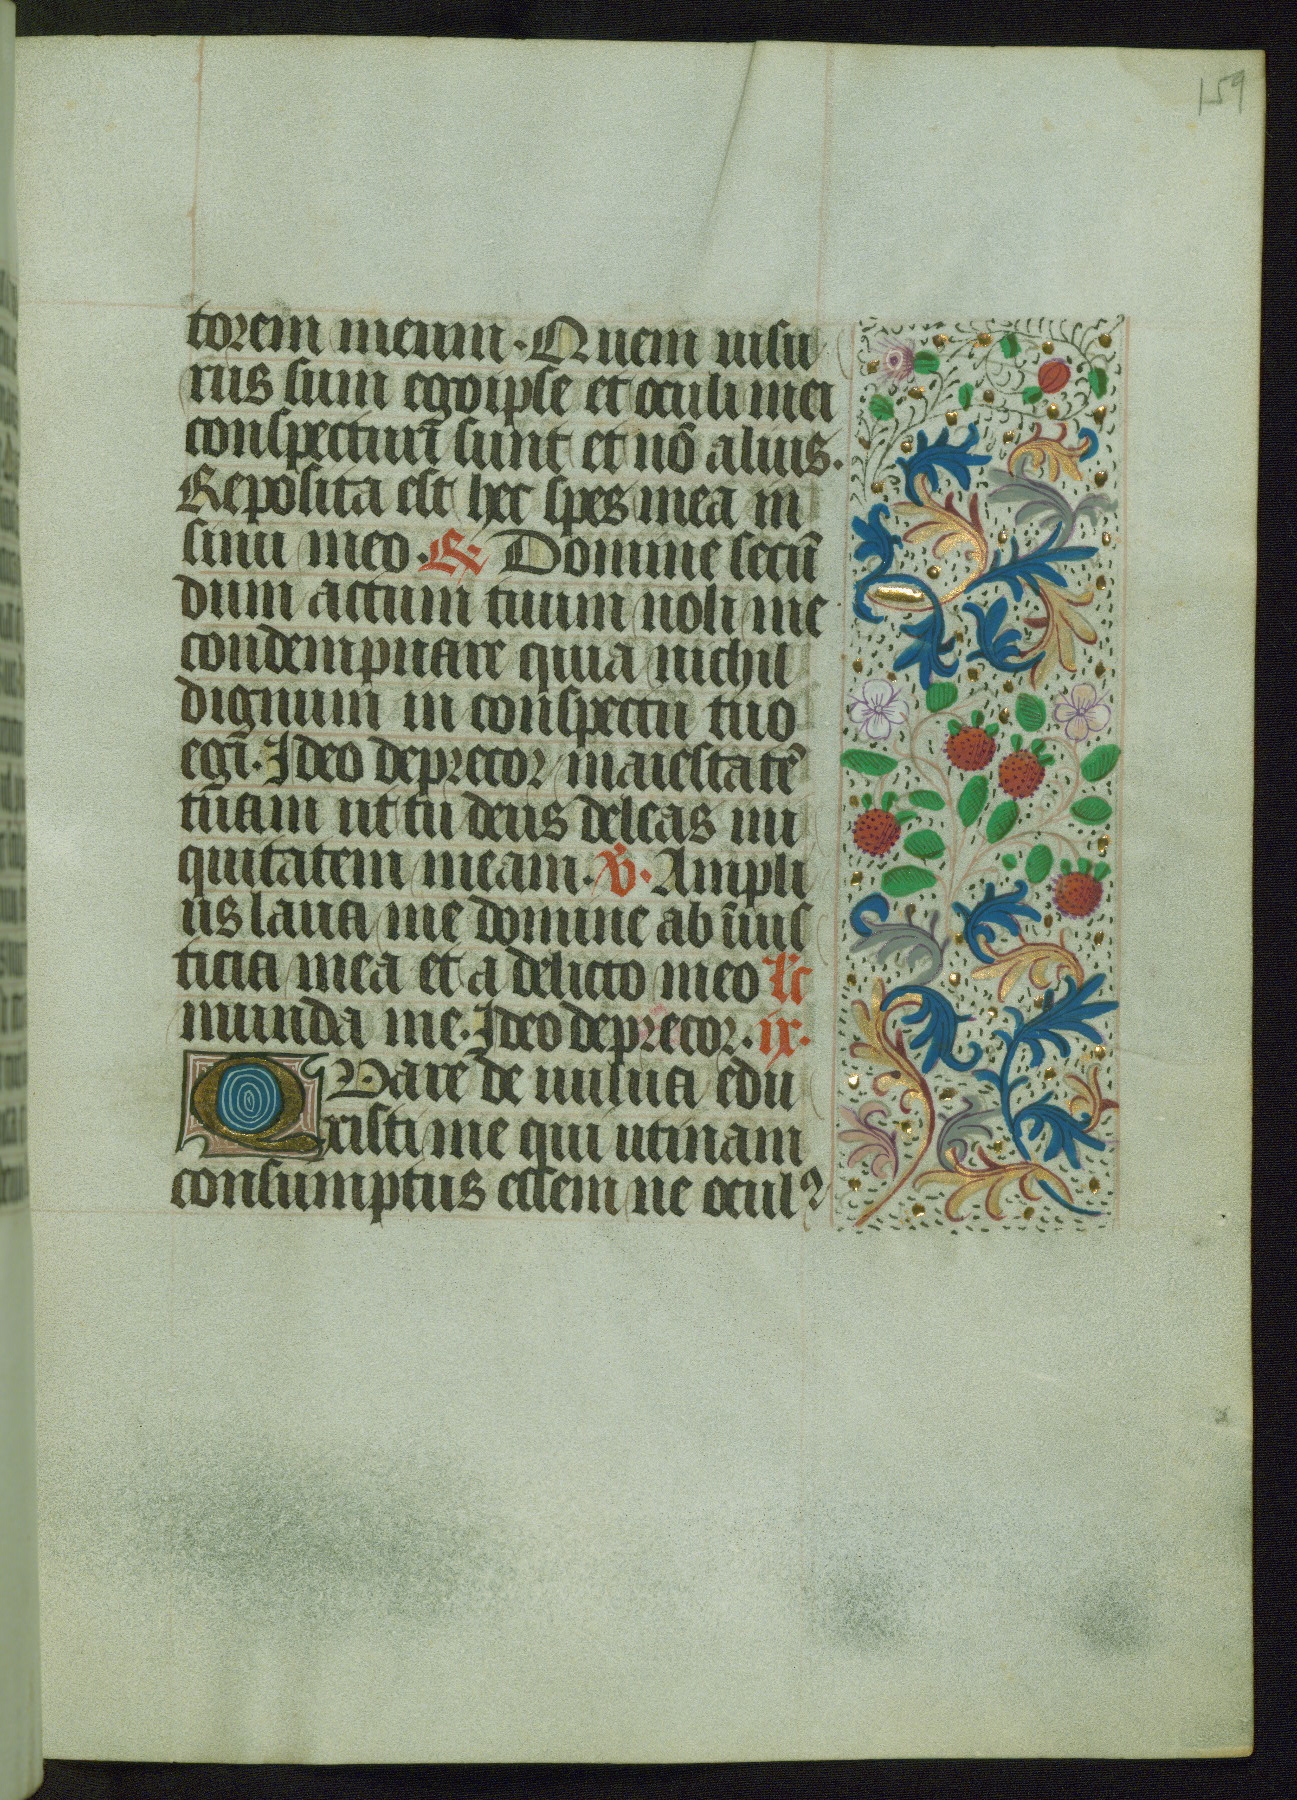 159
torem meum. Quem uisu
rus sum ego ipse et oculi mei
conspecturi̅ sunt et no̅ alius.
Reposita est hec spes mea in
sinu meo. R. Domine secu̅
dum actum tuum noli me
condempnare quia nichil
dignum in conspectu tuo
egi̅. Ideo deprecor maiestate̅
tuam ut tu deus deleas ini
quitatem meam. V. Ampli
us laua me domine ab inius
ticia mea et a delicto meo Lc
munda me. Ideo deprecor. ix.
Quare de uulua edu
xisti me qui utinam
consumptus essem ne ocul᷒